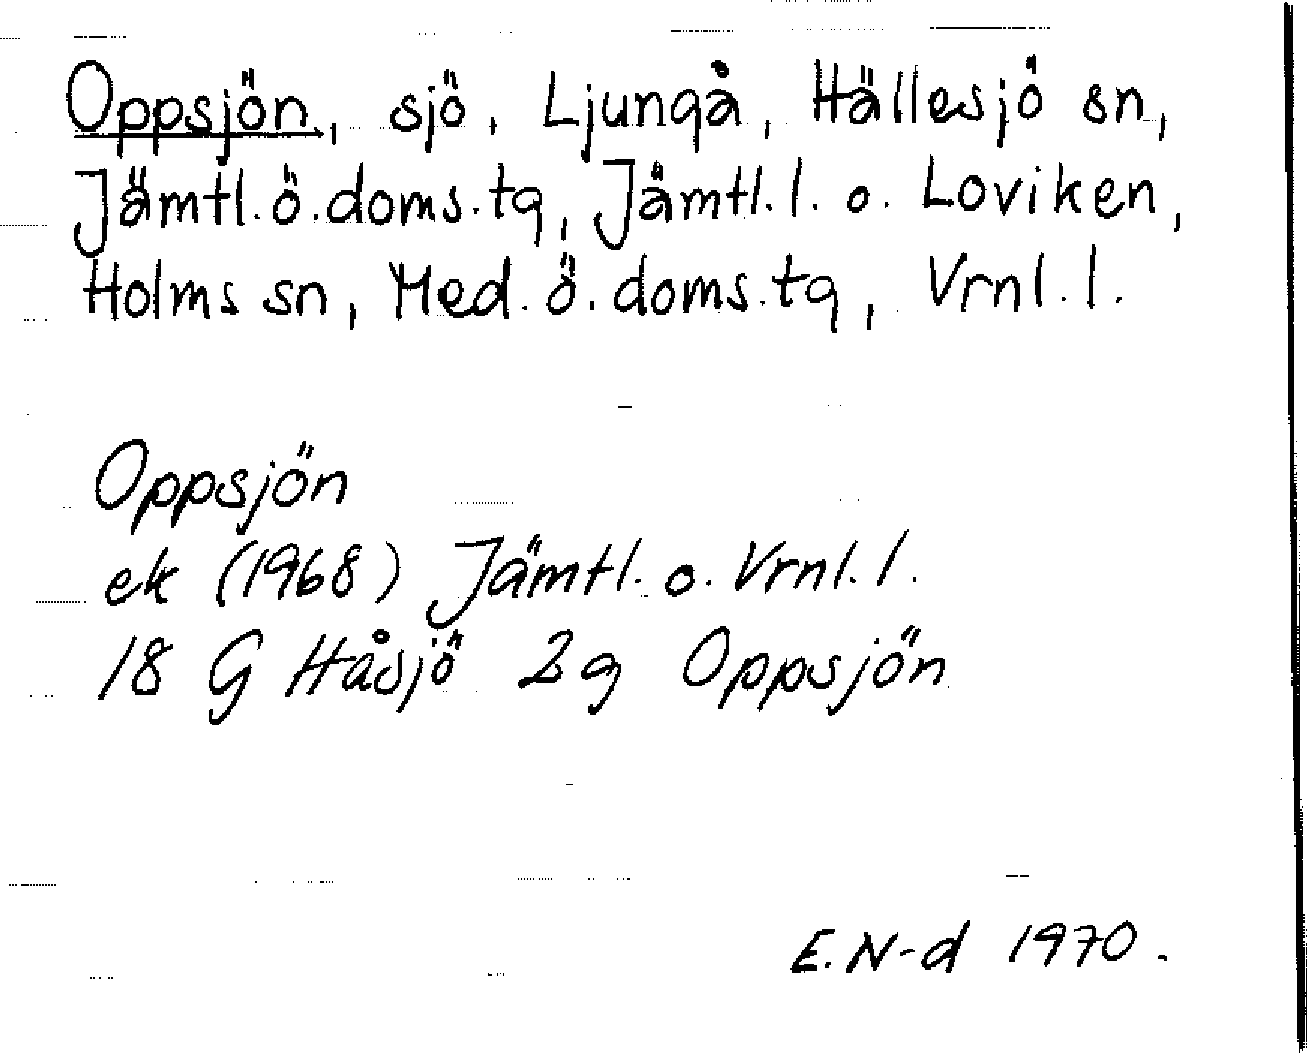 Oppsjön, sjö, Ljungå, Hällesjö sn,
Jämtl. ö. doms. tg, Jämtl. l. o. Loviken,
Holms sn, Med. ö. doms. tg, Vrnl. l.
Oppsjön
ek (1968) Jämtl. o. Vrnl. l.
18 G Håsjö 2g Oppsjön
E. N-d 1970.